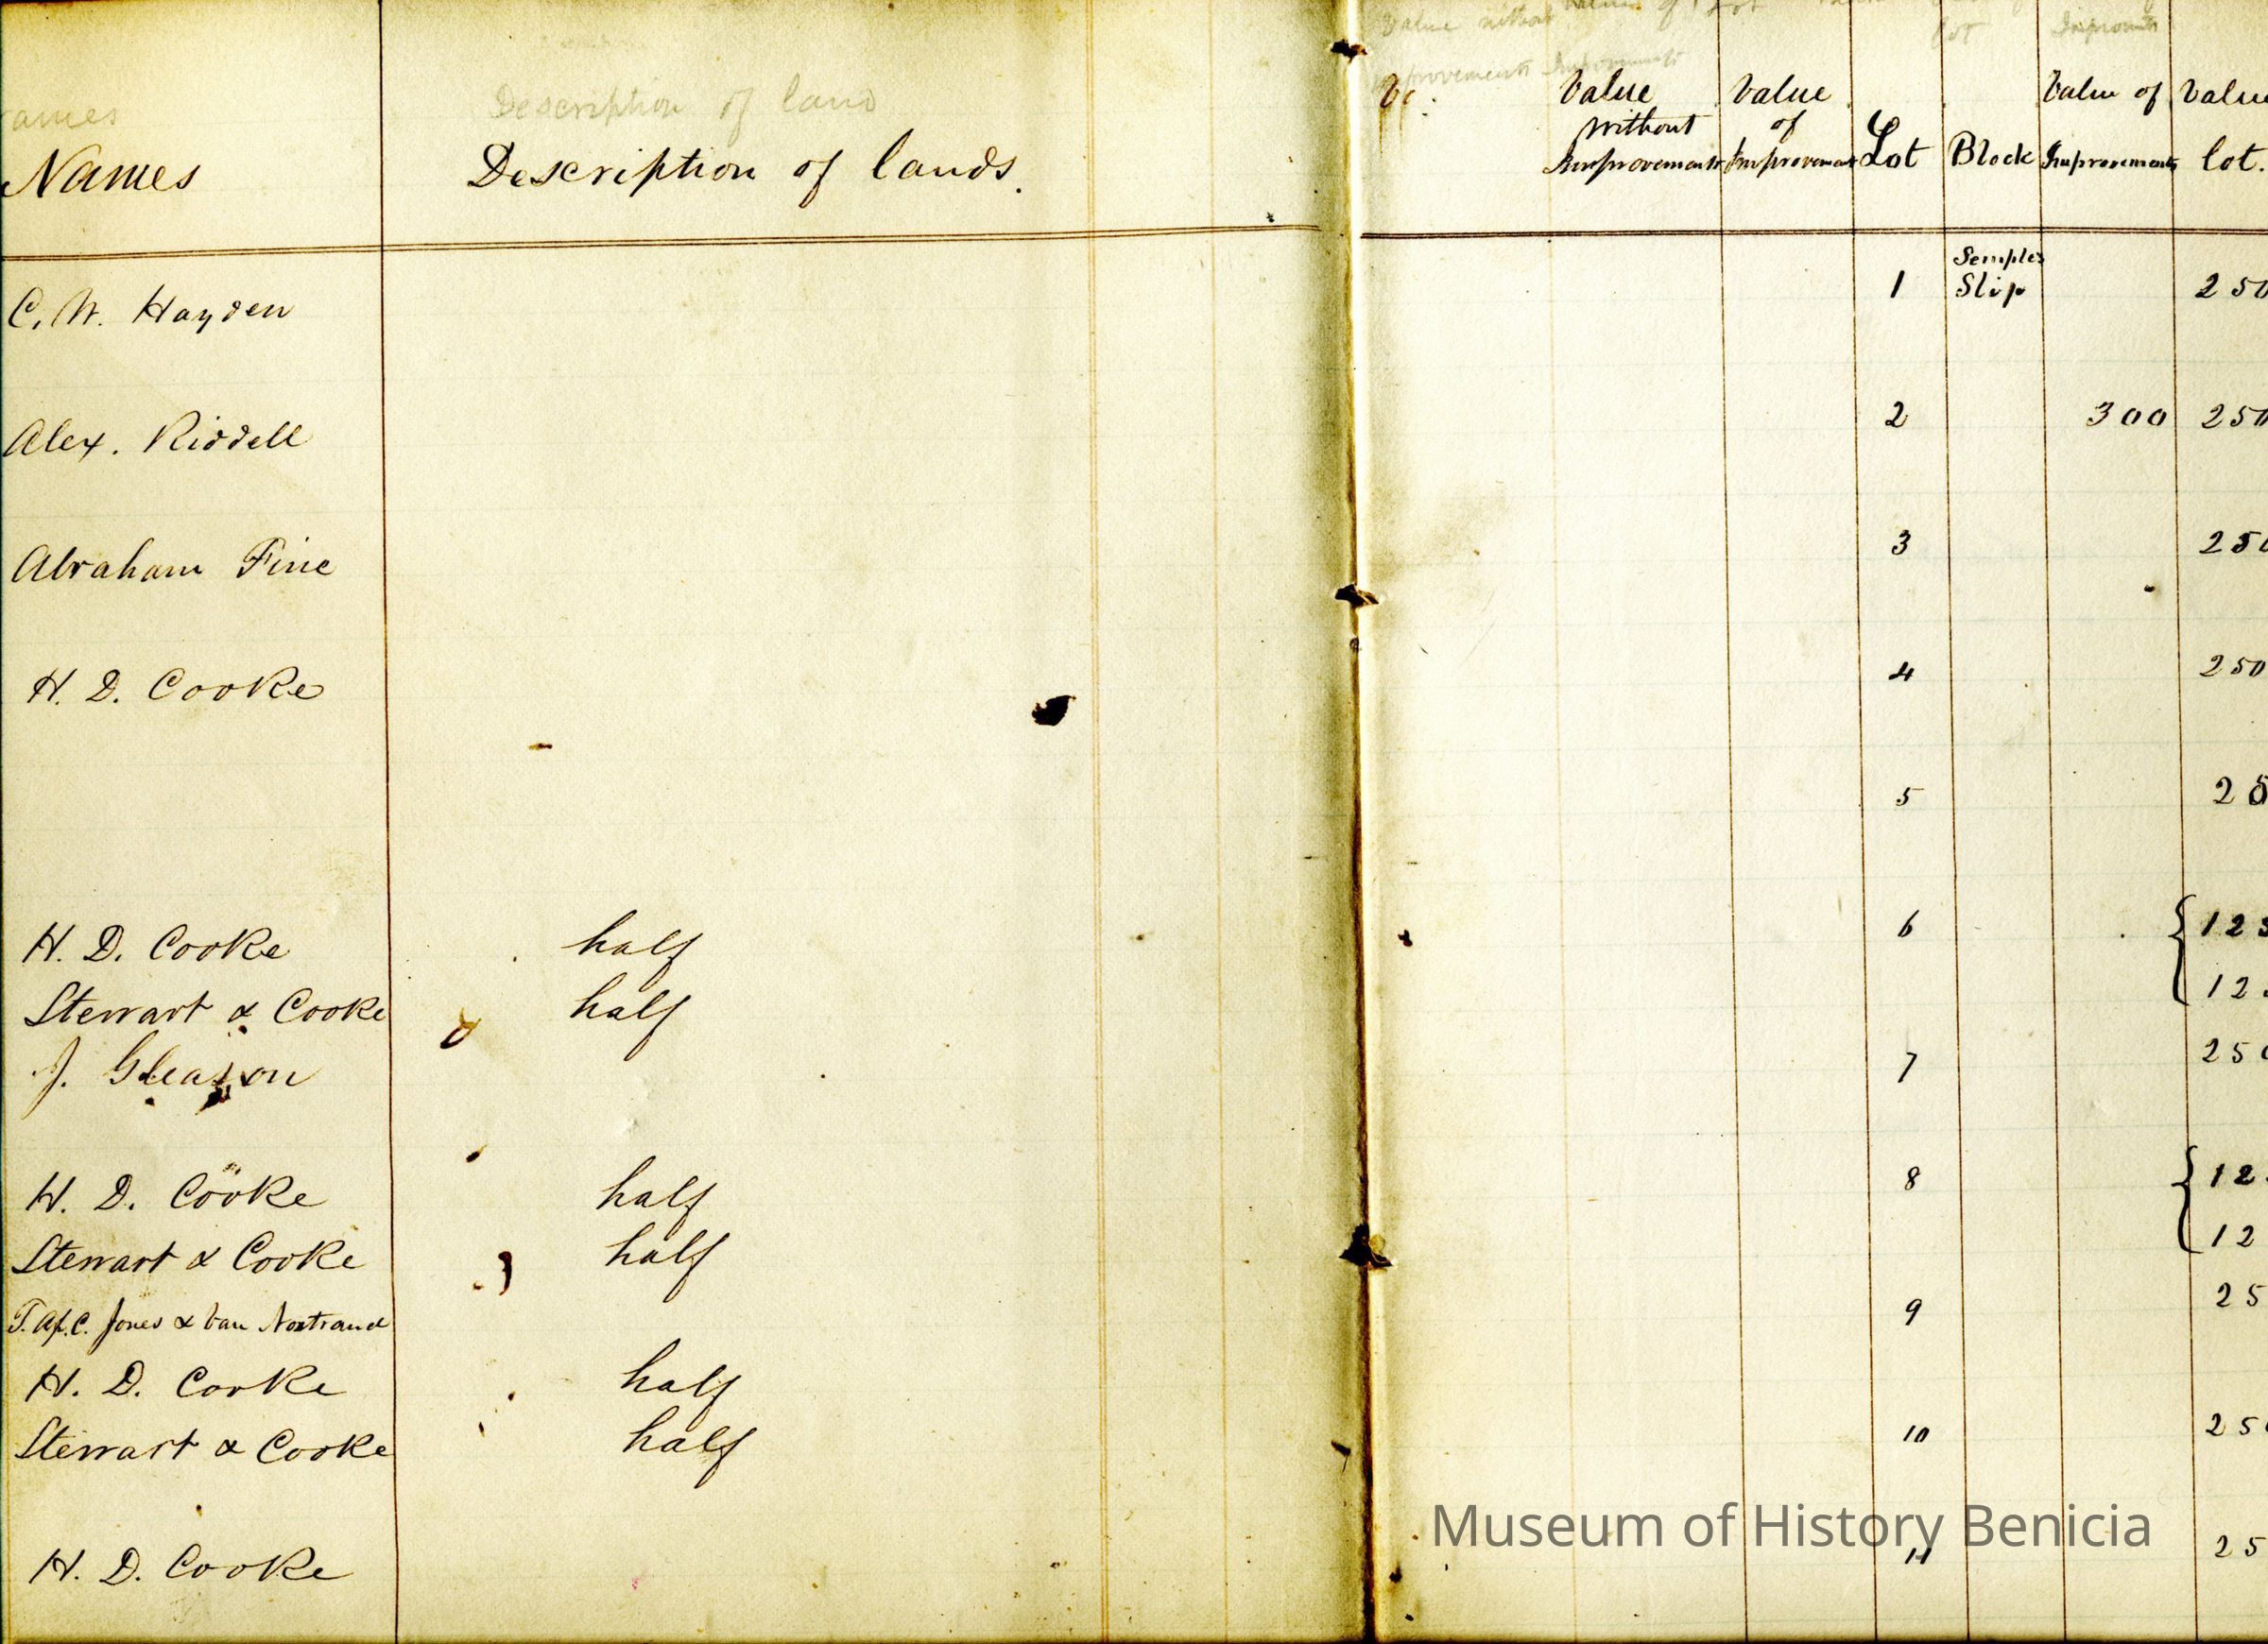 Description of land
Names
Description of lands.
Value
Without
Improvements
Value
of
Improvement
Lot
Block
Value of
Improvements
Value
lot.
C. W. Hayden 1 Semples Slip 250
Alex. Riddell 2 300 250
Abraham Fine 3 250
H. D. Cooke 4 250
5 25
H. D. Cooke half 6 { 125
Stewart & Cooke half 12
J. Gleason 7 250
H. D. Cooke half 8 { 12
Stewart & Cooke half 12
T. Ap. C. Jones & Van Nostrand 9 25
H. D. Cooke half
Stewart & Cooke half 10 250
H. D. Cooke 11 25
Museum of History Benicia